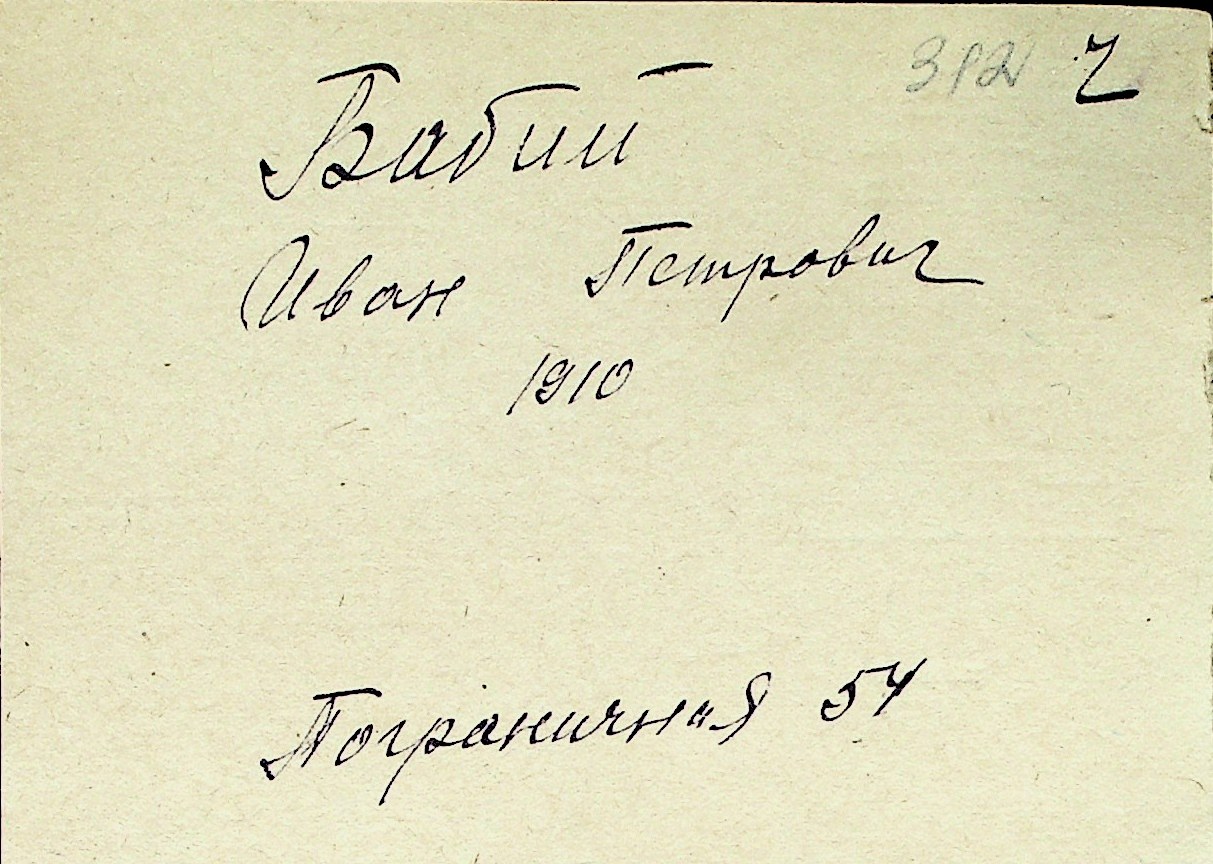 312 ч
Бабий
Иван Петрович
1910
Пограничная 54